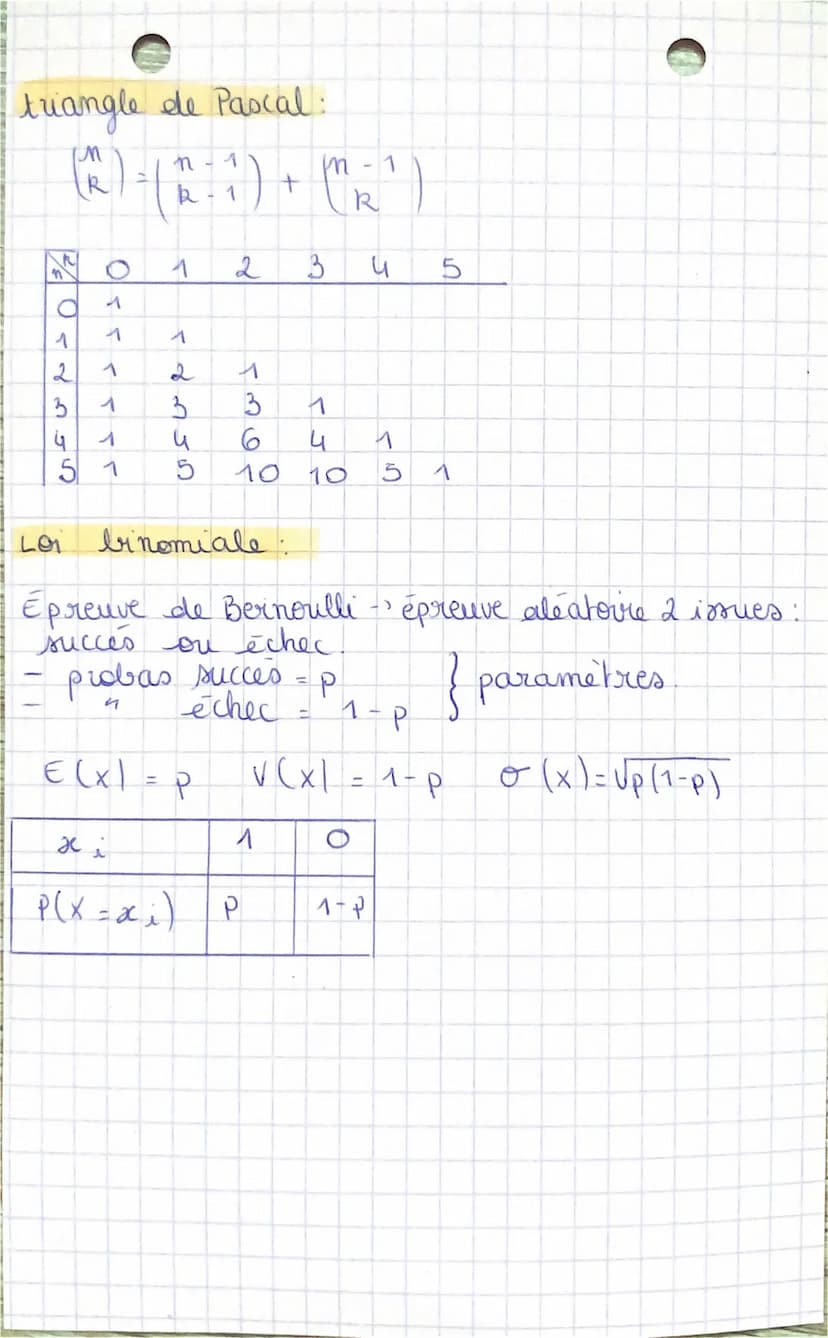 triangle de Pascal :
(n k) = (n - 1 k - 1) + (n - 1 k)
n k 0 1 2 3 4 5
0 1
1 1 1
2 1 2 1
3 1 3 3 1
4 1 4 6 4 1
5 1 5 10 10 5 1
Loi binomiale :
Épreuve de Bernoulli -> épreuve aléatoire 2 issues :
succès ou échec.
- probas succès = p } paramètres.
- " échec = 1 - p
E(X) = p V(X) = 1 - p σ(x) = √p(1-p)
x i 1 0
P(X = x i) p 1-p